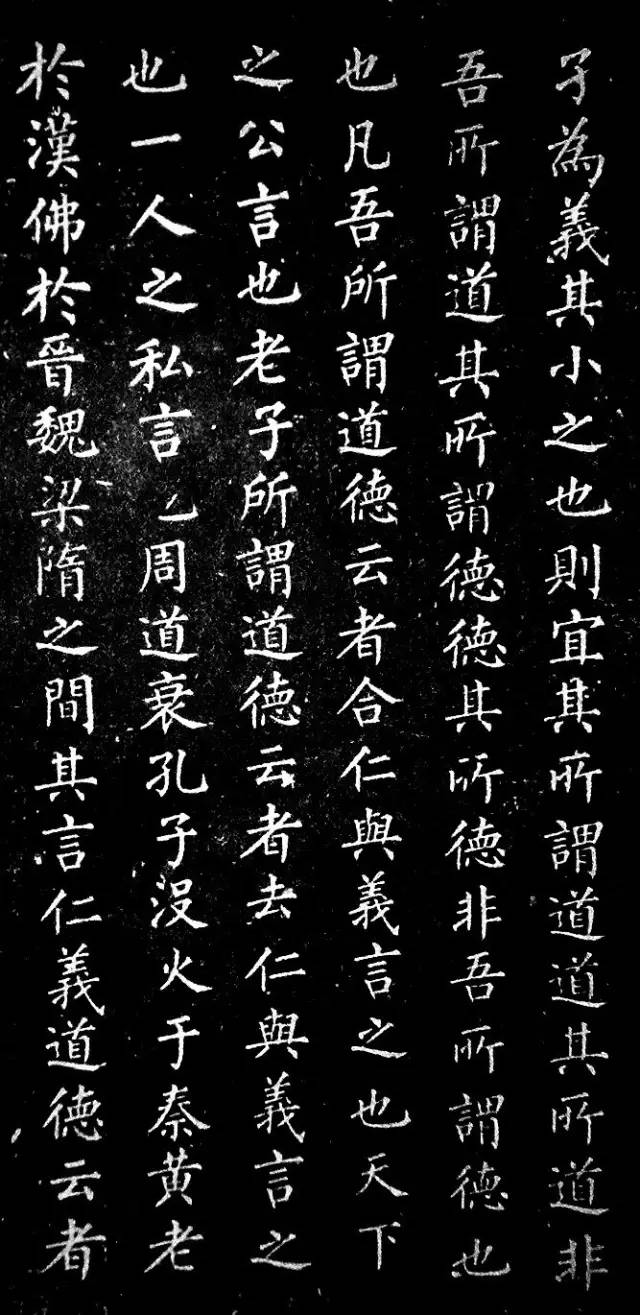 孑為義其小之也則宜其所謂道道其所道非
吾所謂道其所謂德德其所德非吾所謂德也
也凡吾所謂道德云者合仁與義言之也天下
之公言也老子所謂道德云者去仁與義言之
也一人之私言周道衰孔子没火于秦黄老
於漢佛於晉魏梁隋之間其言仁義道德云者